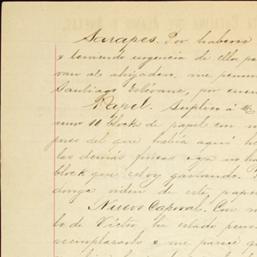 Sarapes. Por haberse
y teniendo urgencia de ellos para
van al ahijadero, me permi
Santiago Estévane, por cuen
Papel. Suplico á
uno 11 block de papel con m
pues del que había aquí he
las demás fincas y ya no ha
block que estoy gastando.
donga orden de este papel
Nuevo Caporal. Con m
lo de Victor he estado pens
reemplazarlo y me parece q